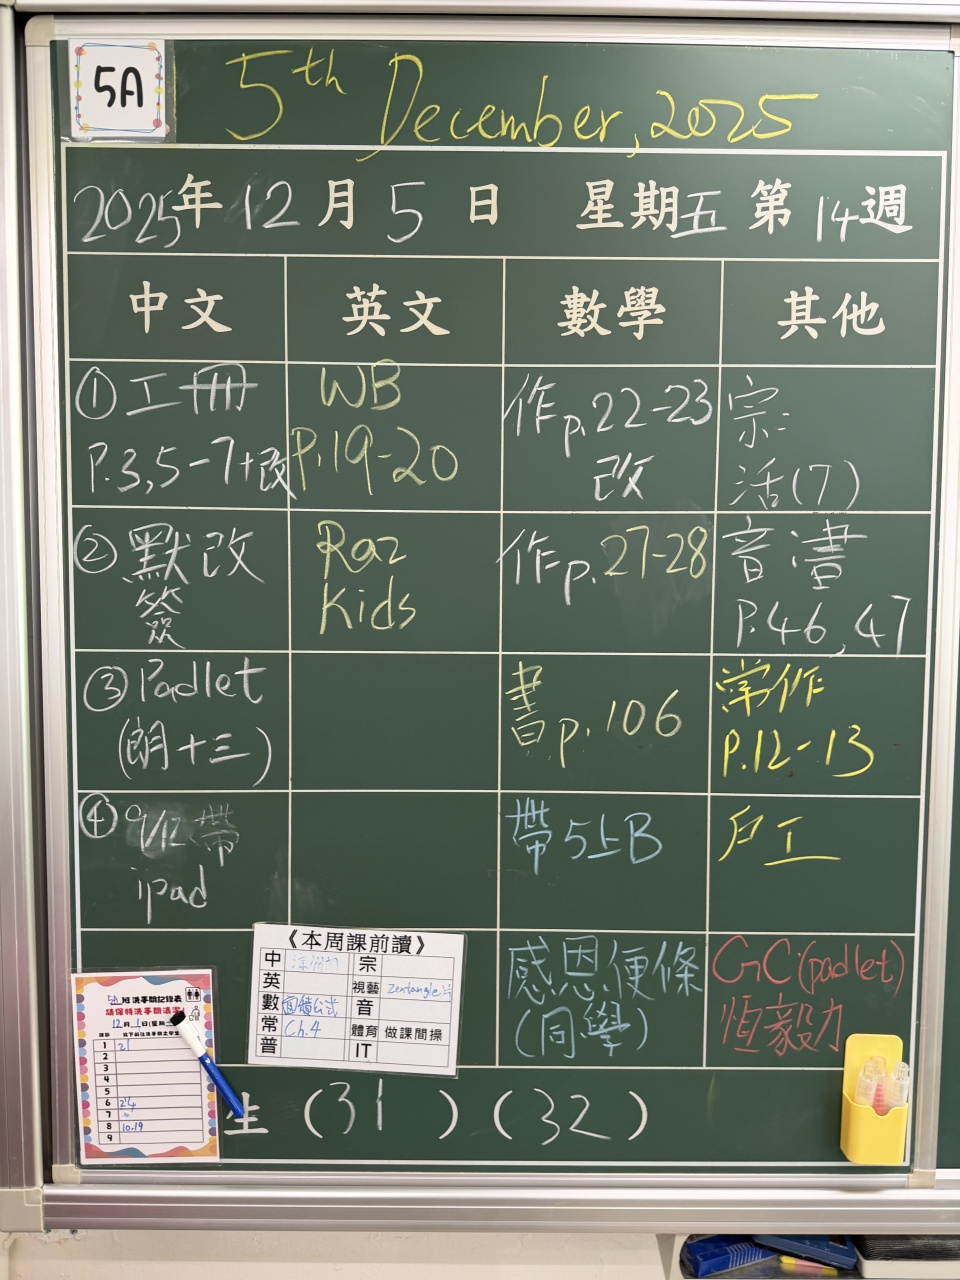 5A
5th December, 2025
2025年12月5日 星期五 第14週
中文 英文 數學 其他
①工冊
P.3,5-7+改
WB
P.19-20
作p.22-23
改
宗:
活(7)
②默改
簽
Raz
Kids
作p.27-28
音書
P.46,47
③Padlet
(朗十三)
書p.106
常作
P.12-13
④9/12帶
ipad
帶5上B
戶工
感恩便條
(同學)
GC(padlet)
恆毅力
《本周課前讀》
中
宗
英
視藝
數 面積公式
音
常 Ch.4
體育 做課間操
普
IT
5A班洗手間記錄表
請保持洗手間清潔
12月1日(星期
1 21
2
3
4
5
6 24
7
8 10.19
9
生 (31) (32)